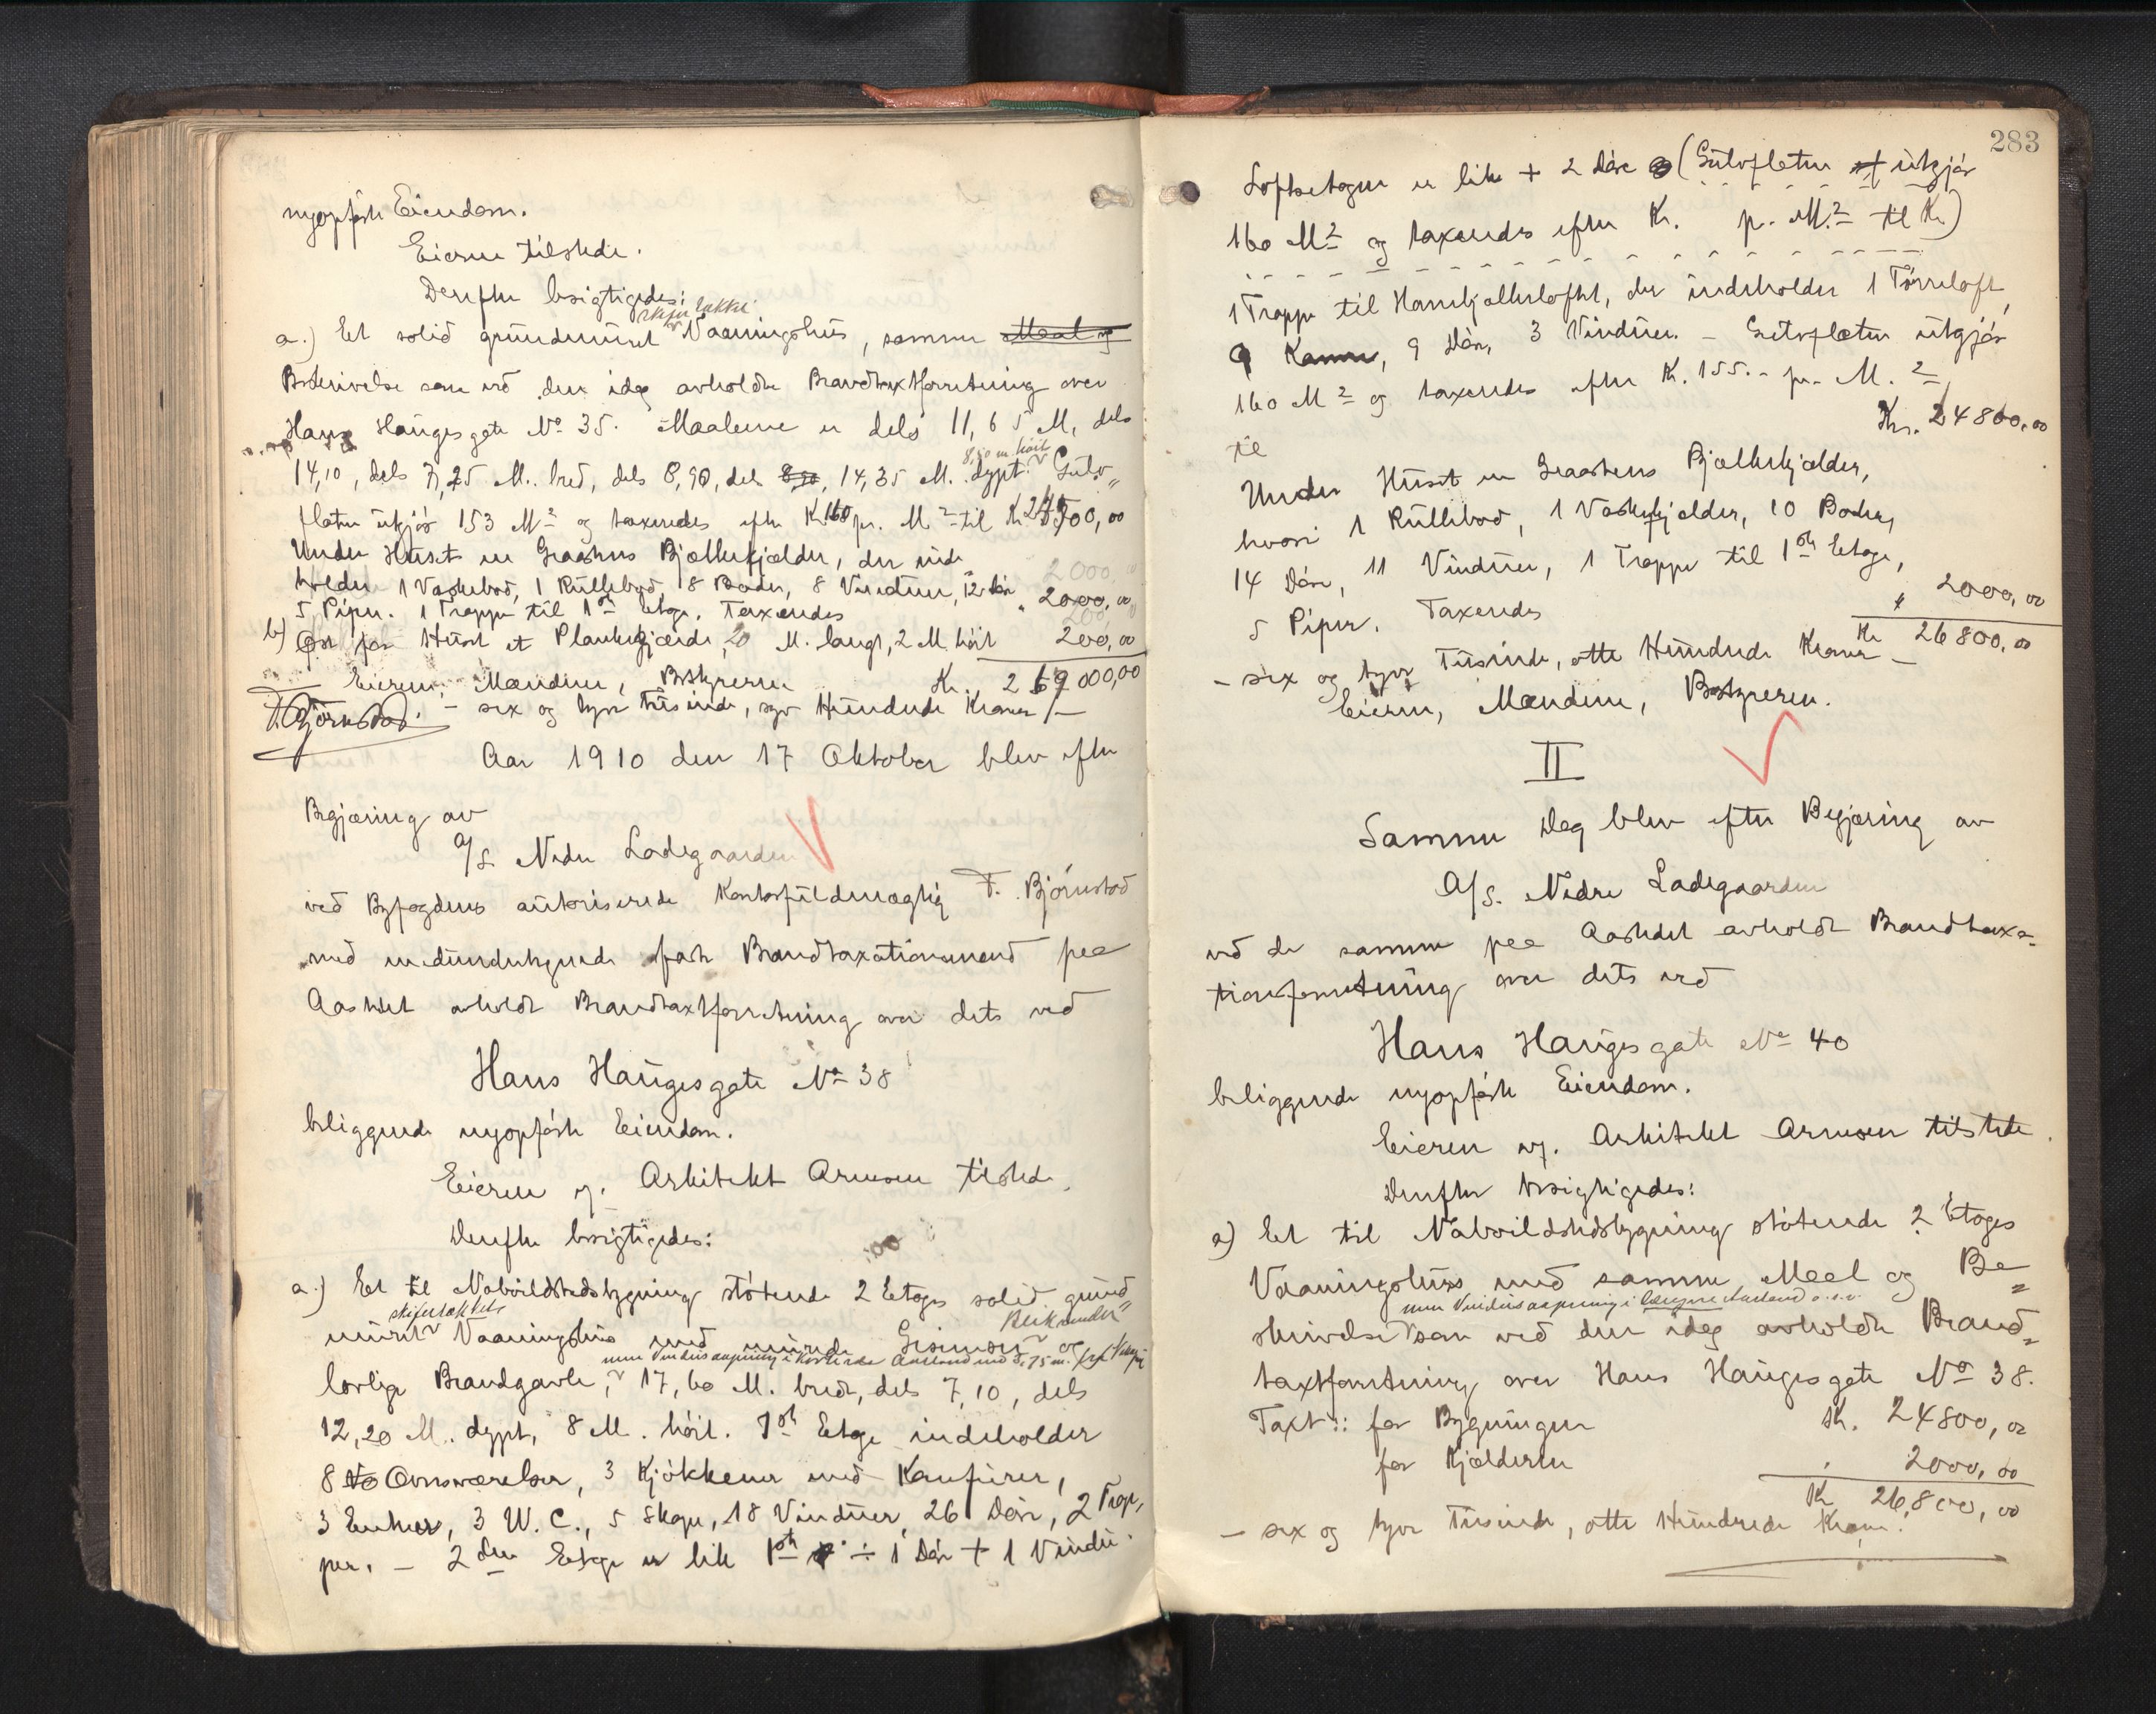 nyopførte Eiendom.
Eieren tilstede.
Derefter besigtigedes:
skifertækket
a.) Et solid grundmuret Vaaningshus, samme Maal og
Beskrivelse som ved den idag avholdte Brandtaxtforretning over
Hans Haugesgate No 35. Maalene er dels 11,65 M, dels
8,50 m. høit
14,10, dels 7,25 M. bred, dels 8,90, dels 14,35 M. dypt. Gulv-
flaten utgjør 153 M2 og taxeredes efter Kr. 160 pr. M2 til Kr. 24500,00
Under Huset en Graastens Bjælkekjælder, der inde-
holder 1 Vaskebod, 1 Rullebod, 8 Boder, 8 Vinduer, 12 Døre
5 Piper. 1 Trappe til 1ste Etage. Taxeredes " 2000,00
b) Øst for Huset et Plankegjærde, 20 M. langt, 2 M. høit 200,00
Eieren, Mændene, Bestyreren Kr. 26700,00
F. Bjørnstad. - sex og tyve Tusinde, syv Hundrede Kroner -
Aar 1910 den 17 Oktober blev efter
Begjæring av
A/S Nedre Ladegaarden
ved Byfogdens autoriserede Kontorfuldmægtig F. Bjørnstad
med undertegnede faste Brandtaxationsmænd paa
Aastedet avholdt Brandtaxtforretning over dets ved
Hans Haugesgate No 38
beliggende nyopførte Eiendom.
Eieren v. Arkitekt Arnesen tilstede.
Derefter besigtigedes:
a.) Et til Nabovildstedsbygning støtende 2 Etages solid grund-
skifertækket
muret Vaaningshus med murede Gesimser og
lovlige Brandgavle, 17,60 M. bredt, dels 7,10, dels
12,20 M. dypt, 8 M. høit. 1ste Etage indeholder
8 Ovnsværelser, 3 Kjøkkener med Komfurer,
3 Entreer, 3 W.C., 5 Skape, 18 Vinduer, 26 Døre, 2 Trap-
per. - 2den Etage er lik 1ste ÷ 1 Dør + 1 Vindu.
283
Loftsetagen er lik + 2 Døre (Gulvflaten utgjør
160 M2 og taxeredes efter Kr. pr. M2 til Kr.)
1 Trappe til Hanebjælkeloftet, der indeholder 1 Tørreloft,
9 Kamre, 9 Døre, 3 Vinduer. - Gulvflaten utgjør
160 M2 og taxeredes efter Kr. 155.- pr. M.2
til Kr. 24800,00
Under Huset en Graastens Bjælkekjælder,
hvori 1 Rullebod, 1 Vaskekjælder, 10 Boder,
14 Døre, 11 Vinduer, 1 Trappe til 1ste Etage,
5 Piper. Taxeredes " 2000,00
Kr 26800,00
- sex og tyve Tusinde, otte Hundrede Kroner -
Eieren, Mændene, Bestyreren.
II
Samme Dag blev efter Begjæring av
A/S. Nedre Ladegaarden
ved de samme paa Aastedet avholdt Brandtaxa-
tionsforretning over dets ved
Hans Haugesgate No 40
beliggende nyopførte Eiendom.
Eieren v. Arkitekt Arnesen tilstede.
Derefter besigtigedes:
a) Et til Nabovildstedsbygning støtende 2 Etages
Vaaningshus med samme Maal og Be-
skrivelse som ved den idag avholdte Brand-
taxtforretning over Hans Haugesgate No 38.
Taxt: for Bygningen Kr. 24800,00
for Kjælderen " 2000,00
Kr 26,800,00
- sex og tyve Tusinde, otte Hundrede Kroner.